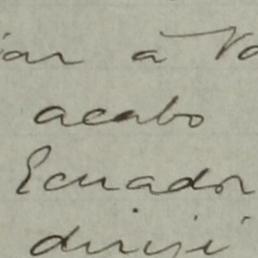 iar à V
acabo
Ecuador
dirijí